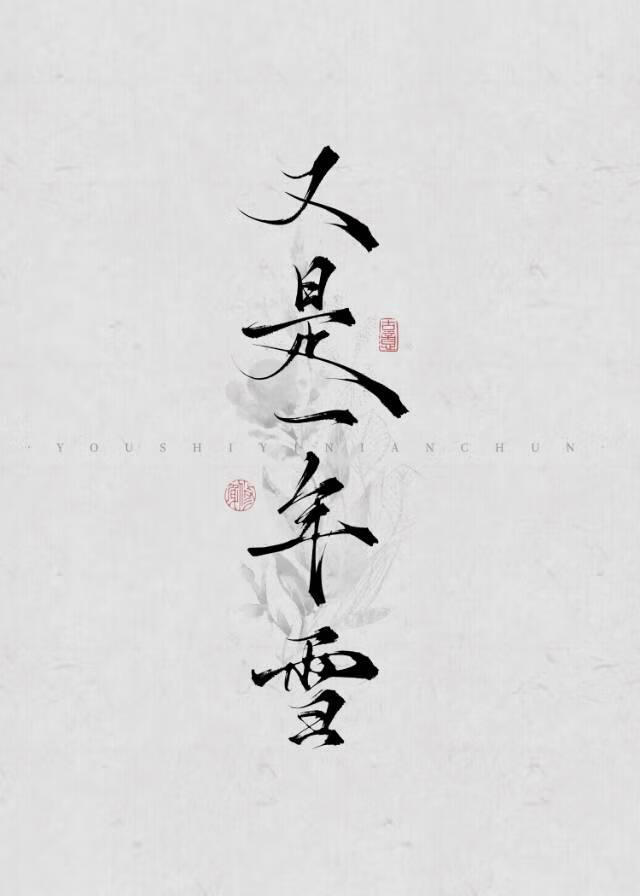 又是一年雪
·YOUSHIYINIANCHUN·